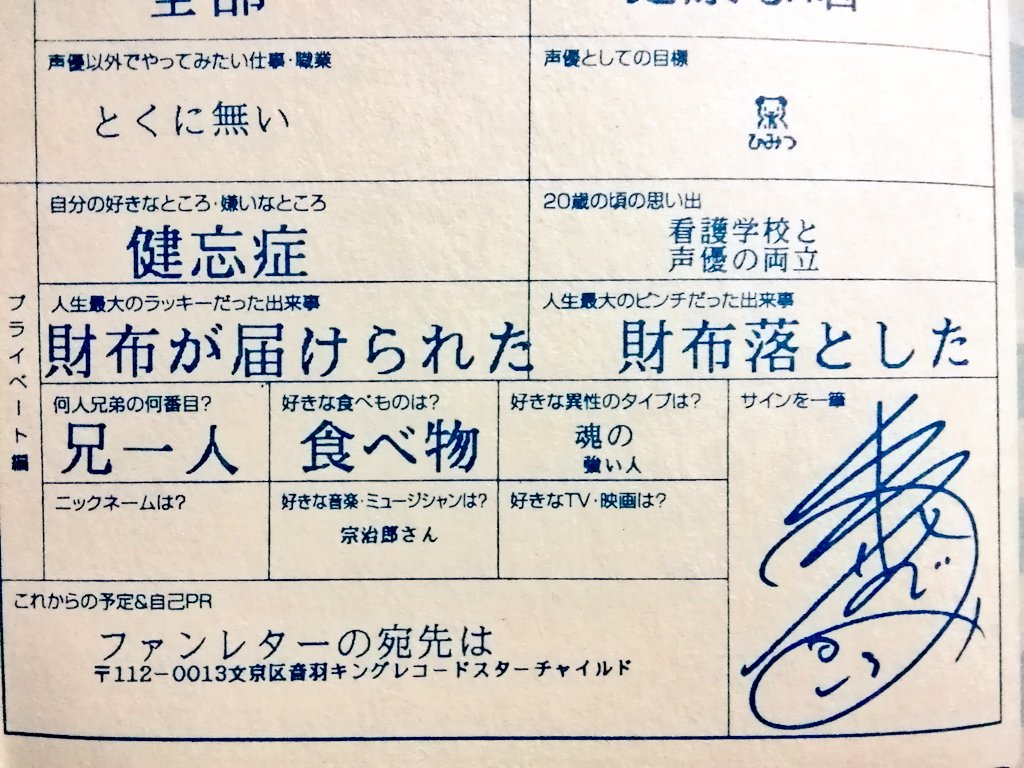 全部
声優以外でやってみたい仕事・職業
とくに無い
声優としての目標
ひみつ
プライベート編
自分の好きなところ・嫌いなところ
健忘症
20歳の頃の思い出
看護学校と
声優の両立
人生最大のラッキーだった出来事
財布が届けられた
人生最大のピンチだった出来事
財布落とした
何人兄弟の何番目?
兄一人
好きな食べものは?
食べ物
好きな異性のタイプは?
魂の
強い人
サインを一筆
ニックネームは?
好きな音楽・ミュージシャンは?
宗治郎さん
好きなTV・映画は?
これからの予定&自己PR
ファンレターの宛先は
〒112-0013文京区音羽キングレコードスターチャイルド